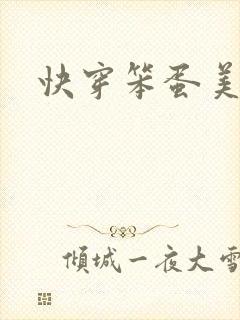 快穿笨蛋美
倾城一夜大雪